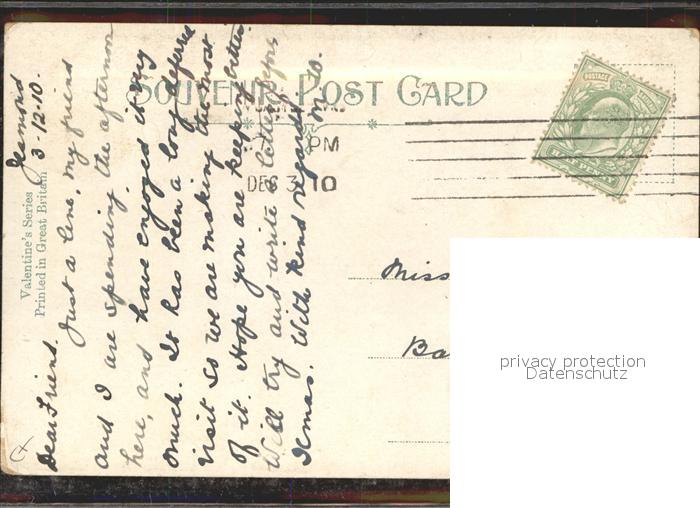 SOUVENIR POST CARD
Valentine's Series
Printed in Great Britain
POSTAGE
PM
DEC 3 10
Jesmond
3-12-10.
Dear Friend.
Just a line, my friend
and I are spending the afternoon
here, and have enjoyed it very
much. It has been a long deferred
visit so we are making the most
of it. Hope you are keeping better.
Will try and write a letter before
Xmas. With kind regards
Miss
Ba
privacy protection
Datenschutz